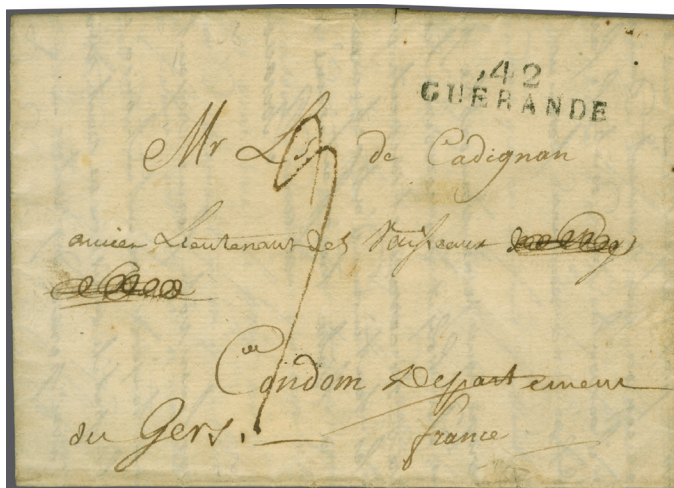 42
GUERANDE
Mr Ls de Cadignan
ancien Lieutenant des Vaisseaux
Condom Departement
du Gers. france